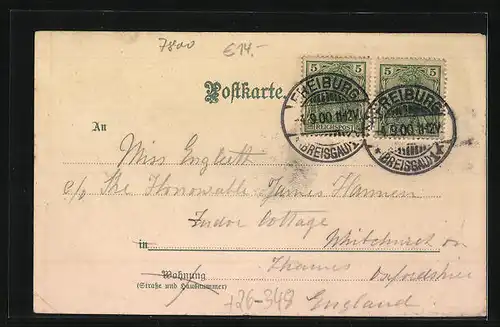 7800
€14.-
Postkarte
5 5 5 5
REICHSPOST
FREIBURG
4.9.00.11-12V.
* (BREISGAU) 1
FREIBURG
4.9.00.11-12V.
* (BREISGAU) 1
An
Miss Englieth
c/o The Honourable James Hannen
Tudor Cottage
in Whitchurch on
Thames Oxfordshire
Wohnung
(Straße und Hausnummer)
+26-348
England